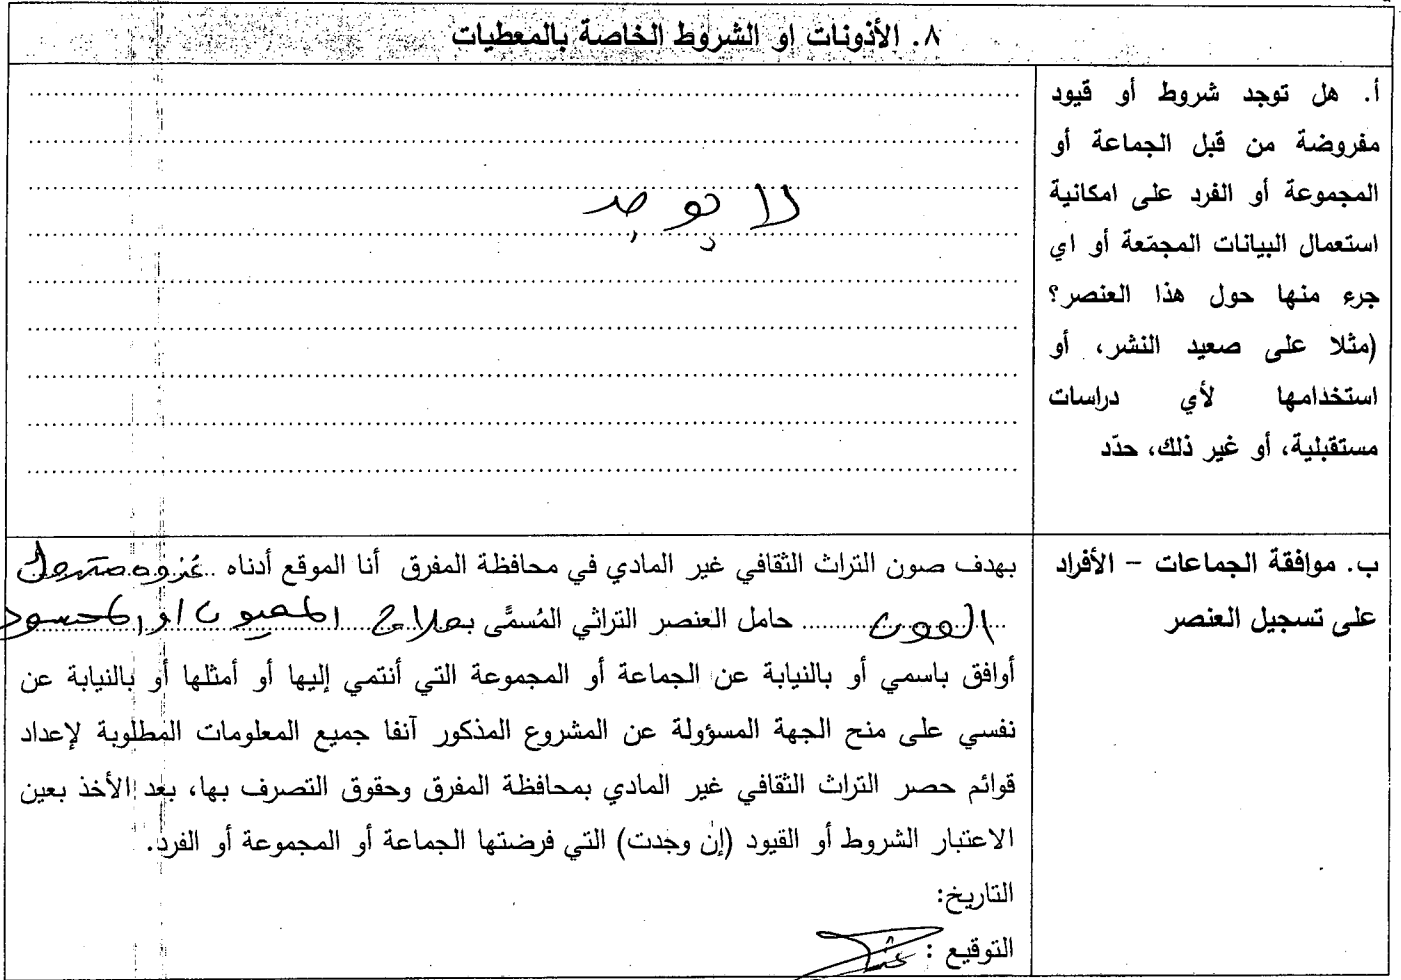 ٨. الأذونات او الشروط الخاصة بالمعطيات
أ. هل توجد شروط أو قيود
مفروضة من قبل الجماعة أو
المجموعة أو الفرد على امكانية
استعمال البيانات المجمّعة أو اي
جرء منها حول هذا العنصر؟
(مثلا على صعيد النشر، أو
استخدامها لأي دراسات
مستقبلية، أو غير ذلك، حدّد
لا يوجد
ب. موافقة الجماعات – الأفراد
على تسجيل العنصر
بهدف صون التراث الثقافي غير المادي في محافظة المفرق أنا الموقع أدناه
حامل العنصر التراثي المُسمَّى بـ علاج المعيون او المحسود
أوافق باسمي أو بالنيابة عن الجماعة أو المجموعة التي أنتمي إليها أو أمثلها أو بالنيابة عن
نفسي على منح الجهة المسؤولة عن المشروع المذكور آنفا جميع المعلومات المطلوبة لإعداد
قوائم حصر التراث الثقافي غير المادي بمحافظة المفرق وحقوق التصرف بها، بعد الأخذ بعين
الاعتبار الشروط أو القيود (إن وجدت) التي فرضتها الجماعة أو المجموعة أو الفرد.
التاريخ:
التوقيع :